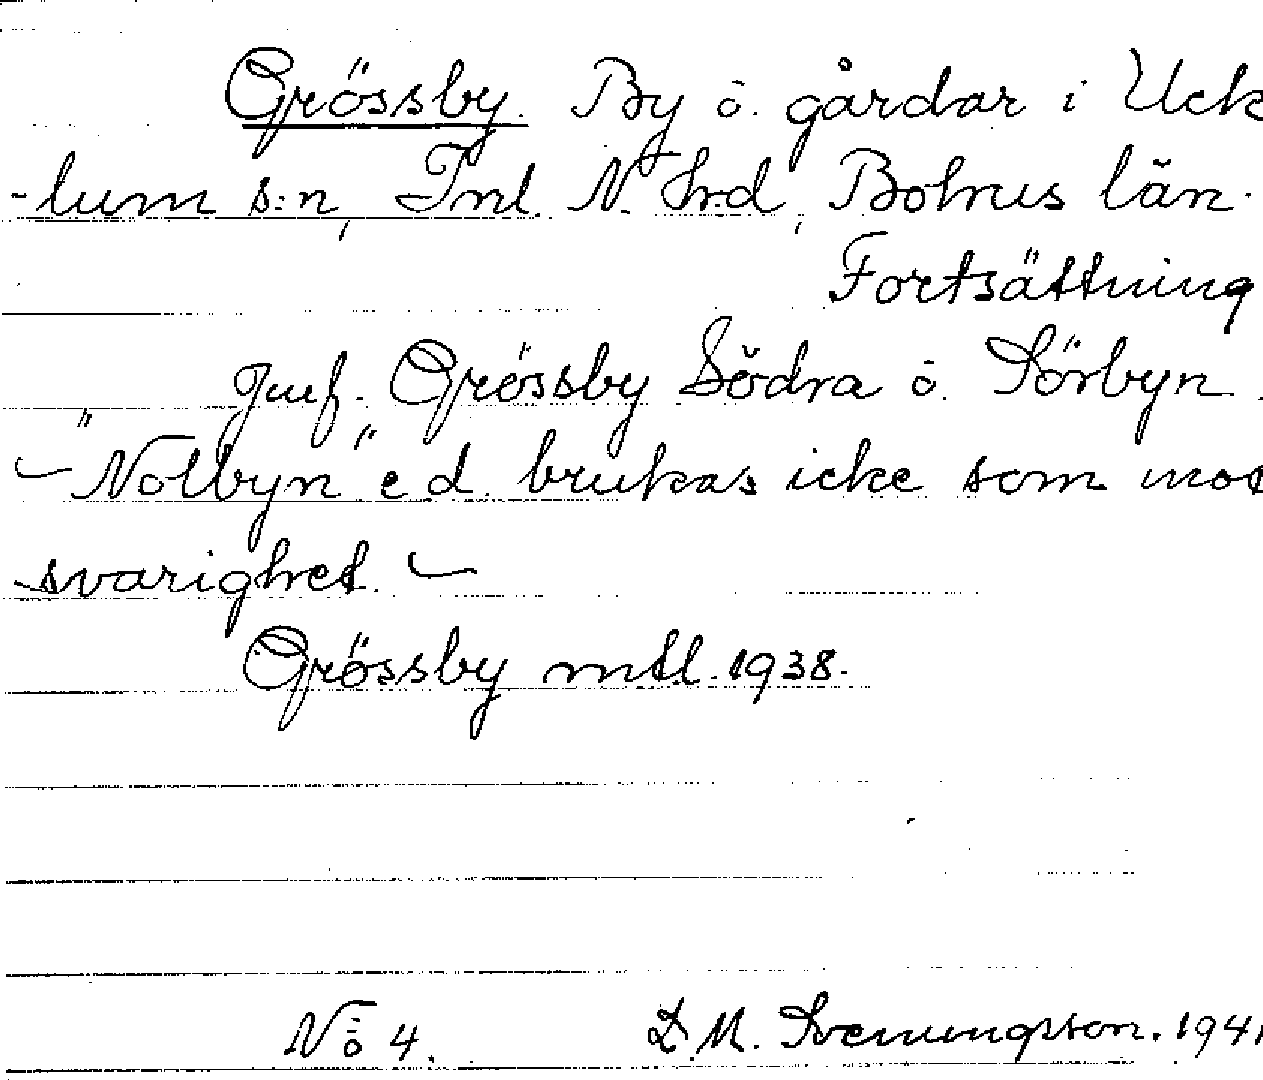 Grössby. By o. gårdar i Uck
-lum s:n, Inl. N. Hrd, Bohus län.
Fortsättning
Jmf. Grössby Södra o. Sörbyn.
– "Nolbyn" e d. brukas icke som mot
-svarighet. –
Grössby mtl. 1938.
No 4. D. M. Svenungsson. 1941